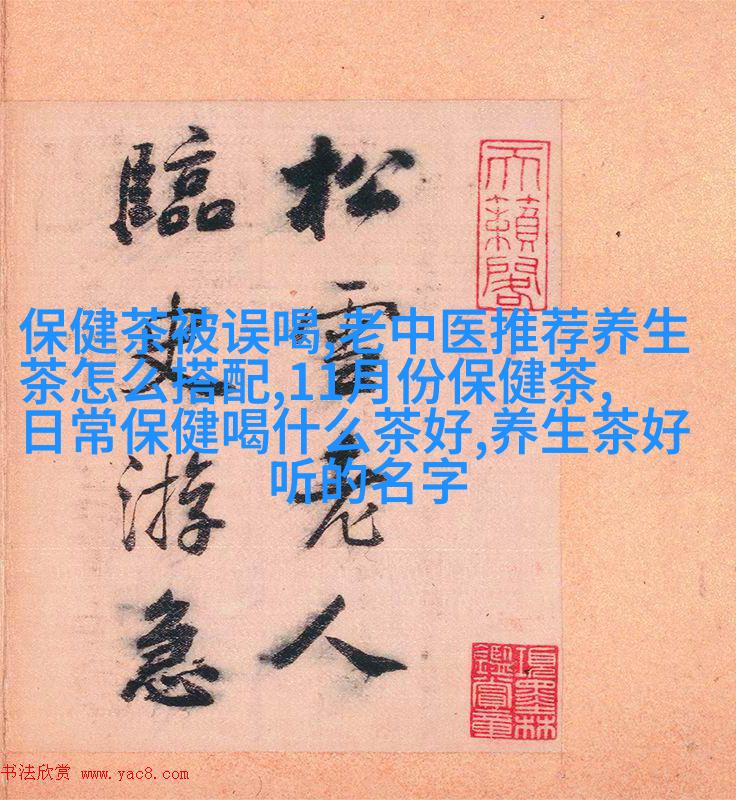 松雪老人
臨史游急
天籟閣
項墨林
鑑賞章
保健茶被误喝,老中医推荐养生
茶怎么搭配,11月份保健茶,
日常保健喝什么茶好,养生茶好
听的名字
书法欣赏 www.yac8.com